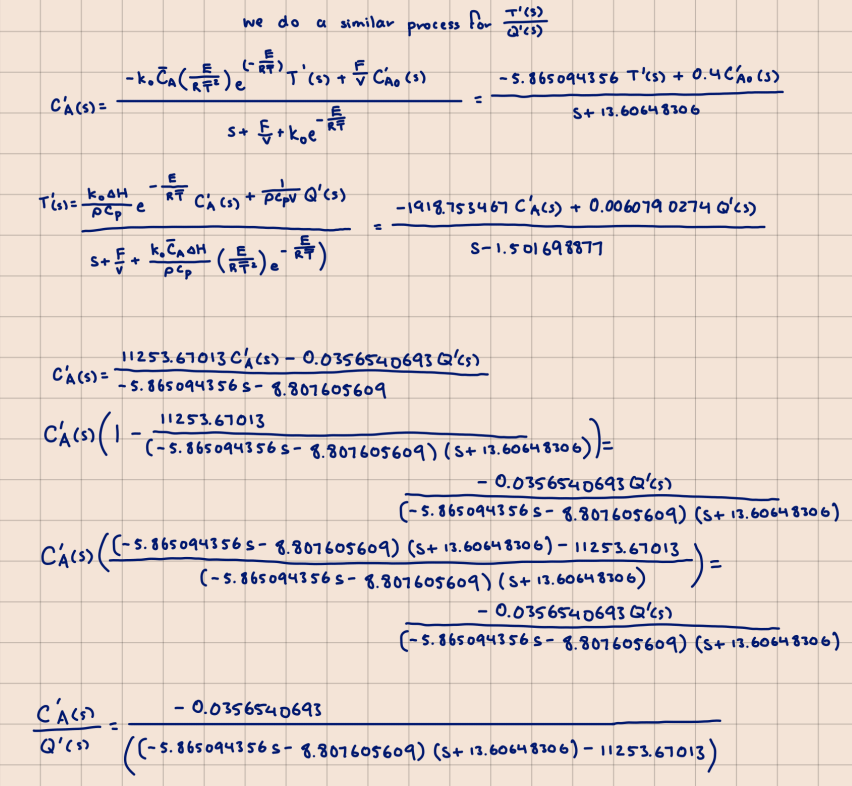 we do a similar process for T'(s)/Q'(s)
C'A(s) = (-k₀ C̄A (E/(RT̄²)) e^(-E/(RT̄)) T'(s) + F/V C'A₀(s)) / (s + F/V + k₀e^(-E/(RT̄))) = (-5.865094356 T'(s) + 0.4 C'A₀(s)) / (s + 13.60648306)
T'(s) = (k₀ΔH/(ρCp) e^(-E/(RT̄)) C'A(s) + 1/(ρCpV) Q'(s)) / (s + F/V + k₀C̄AΔH/(ρCp) (E/(RT̄²)) e^(-E/(RT̄))) = (-1918.753467 C'A(s) + 0.0060790274 Q'(s)) / (s - 1.501698877)
C'A(s) = (11253.67013 C'A(s) - 0.0356540693 Q'(s)) / (-5.865094356 s - 8.807605609)
C'A(s) (1 - 11253.67013 / ((-5.865094356 s - 8.807605609) (s + 13.60648306))) =
-0.0356540693 Q'(s) / ((-5.865094356 s - 8.807605609) (s + 13.60648306))
C'A(s) (((-5.865094356 s - 8.807605609) (s + 13.60648306) - 11253.67013) / ((-5.865094356 s - 8.807605609) (s + 13.60648306))) =
-0.0356540693 Q'(s) / ((-5.865094356 s - 8.807605609) (s + 13.60648306))
C'A(s)/Q'(s) = -0.0356540693 / ((-5.865094356 s - 8.807605609) (s + 13.60648306) - 11253.67013)